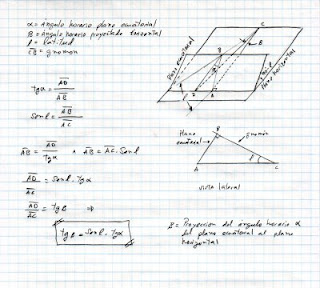 α = ángulo horario plano ecuatorial
β = ángulo horario proyectado horizontal
l = latitud
CB = gnomon
tgα = AD / AB
Sen l = AB / AC
AB = AD / tgα ∧ AB = AC · Sen l
AD / AC = Sen l · tgα
AD / AC = tg β ⇒
tg β = Sen l · tgα
Plano ecuatorial
plano horizontal
C
B
β
D
A
α
l
Plano ecuatorial
B
Gnomon
A
l
C
vista lateral
β = Proyección del ángulo horario α
del plano ecuatorial al plano
horizontal